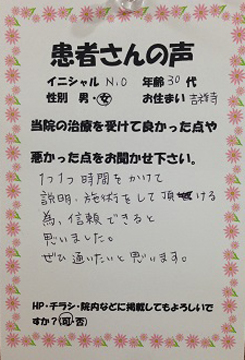 患者さんの声
イニシャル N.O 年齢 30 代
性別 男・女 お住まい 吉祥寺
当院の治療を受けて良かった点や
悪かった点をお聞かせ下さい。
1つ1つ時間をかけて
説明・施術をして頂ける
為、信頼できると
思いました。
ぜひ通いたいと思います。
HP・チラシ・院内などに掲載してもよろしいで
すか?(可・否)